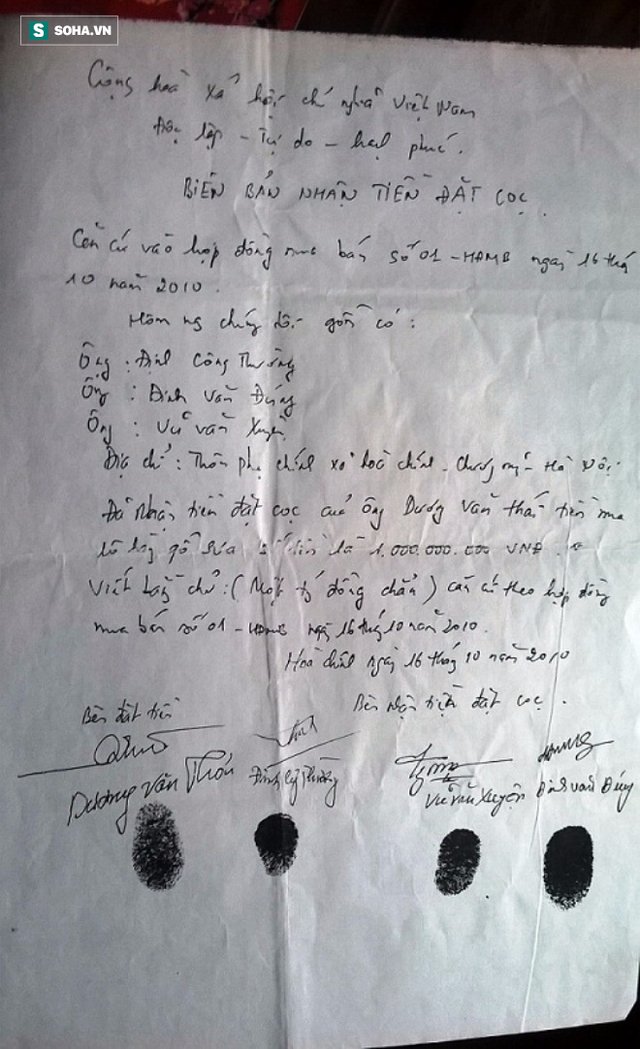 SOHA.VN
Cộng hoà xã hội chủ nghĩa Việt Nam
Độc lập - Tự do - hạnh phúc.
BIÊN BẢN NHẬN TIỀN ĐẶT CỌC.
Căn cứ vào hợp đồng mua bán số 01 - HĐMB ngày 16 tháng
10 năm 2010.
Hôm nay chúng tôi gồm có:
Ông: Đinh Công Thường
Ông: Đinh Văn Đúng
Ông: Vũ Văn Xuyện
Địa chỉ: Thôn phụ chính xã hoà chính - chương mỹ - Hà Nội
Đã Nhận tiền đặt cọc của ông Dương Văn thái tiền mua
lô gỗ sưa số tiền là 1.000.000.000 VNĐ.
Viết bằng chữ: (Một tỷ đồng chẵn) căn cứ theo hợp đồng
mua bán số 01 - HĐMB ngày 16 tháng 10 năm 2010.
Hoà chính ngày 16 tháng 10 năm 2010
Bên đặt tiền
Bên nhận tiền đặt cọc.
Dương Văn Thái
Vũ Văn Xuyện
Đinh Văn Đúng